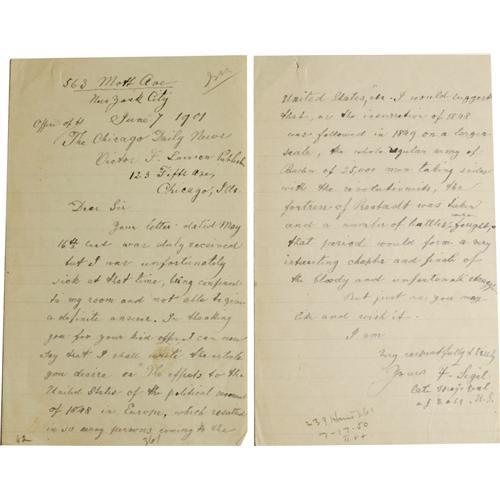 563 Mott Ave
New York City
June 7 1901
Office of
The Chicago Daily News
Victor F. Lawson Publisher
123 Fifth Ave,
Chicago, Ills.
Dear Sir
Your letter dated May
16th last was duly received
but I was unfortunately
sick at that time, being confined
to my room and not able to give
a definite answer. In thanking
you for your kind offer, I can now
say that I shall write the article
you desire on "The effects to the
United States of the political movement
of 1848 in Europe, which resulted
in so many persons coming to the
62
361
United States, etc. I would suggest
that, as the insurrection of 1848
was followed in 1849 on a larger
scale, the whole regular army of
Baden of 25,000 men taking sides
with the revolutionists, the
fortress of Rastadt was taken
and a number of battles were fought,
that period would form a very
interesting chapter and finale of
the bloody and unfortunate struggle.
But just as you may
like and wish it.
I am
Very respectfully & truly
Yours F. Sigel
late Maj. Genl
of Vols. U.S.
7-17-50